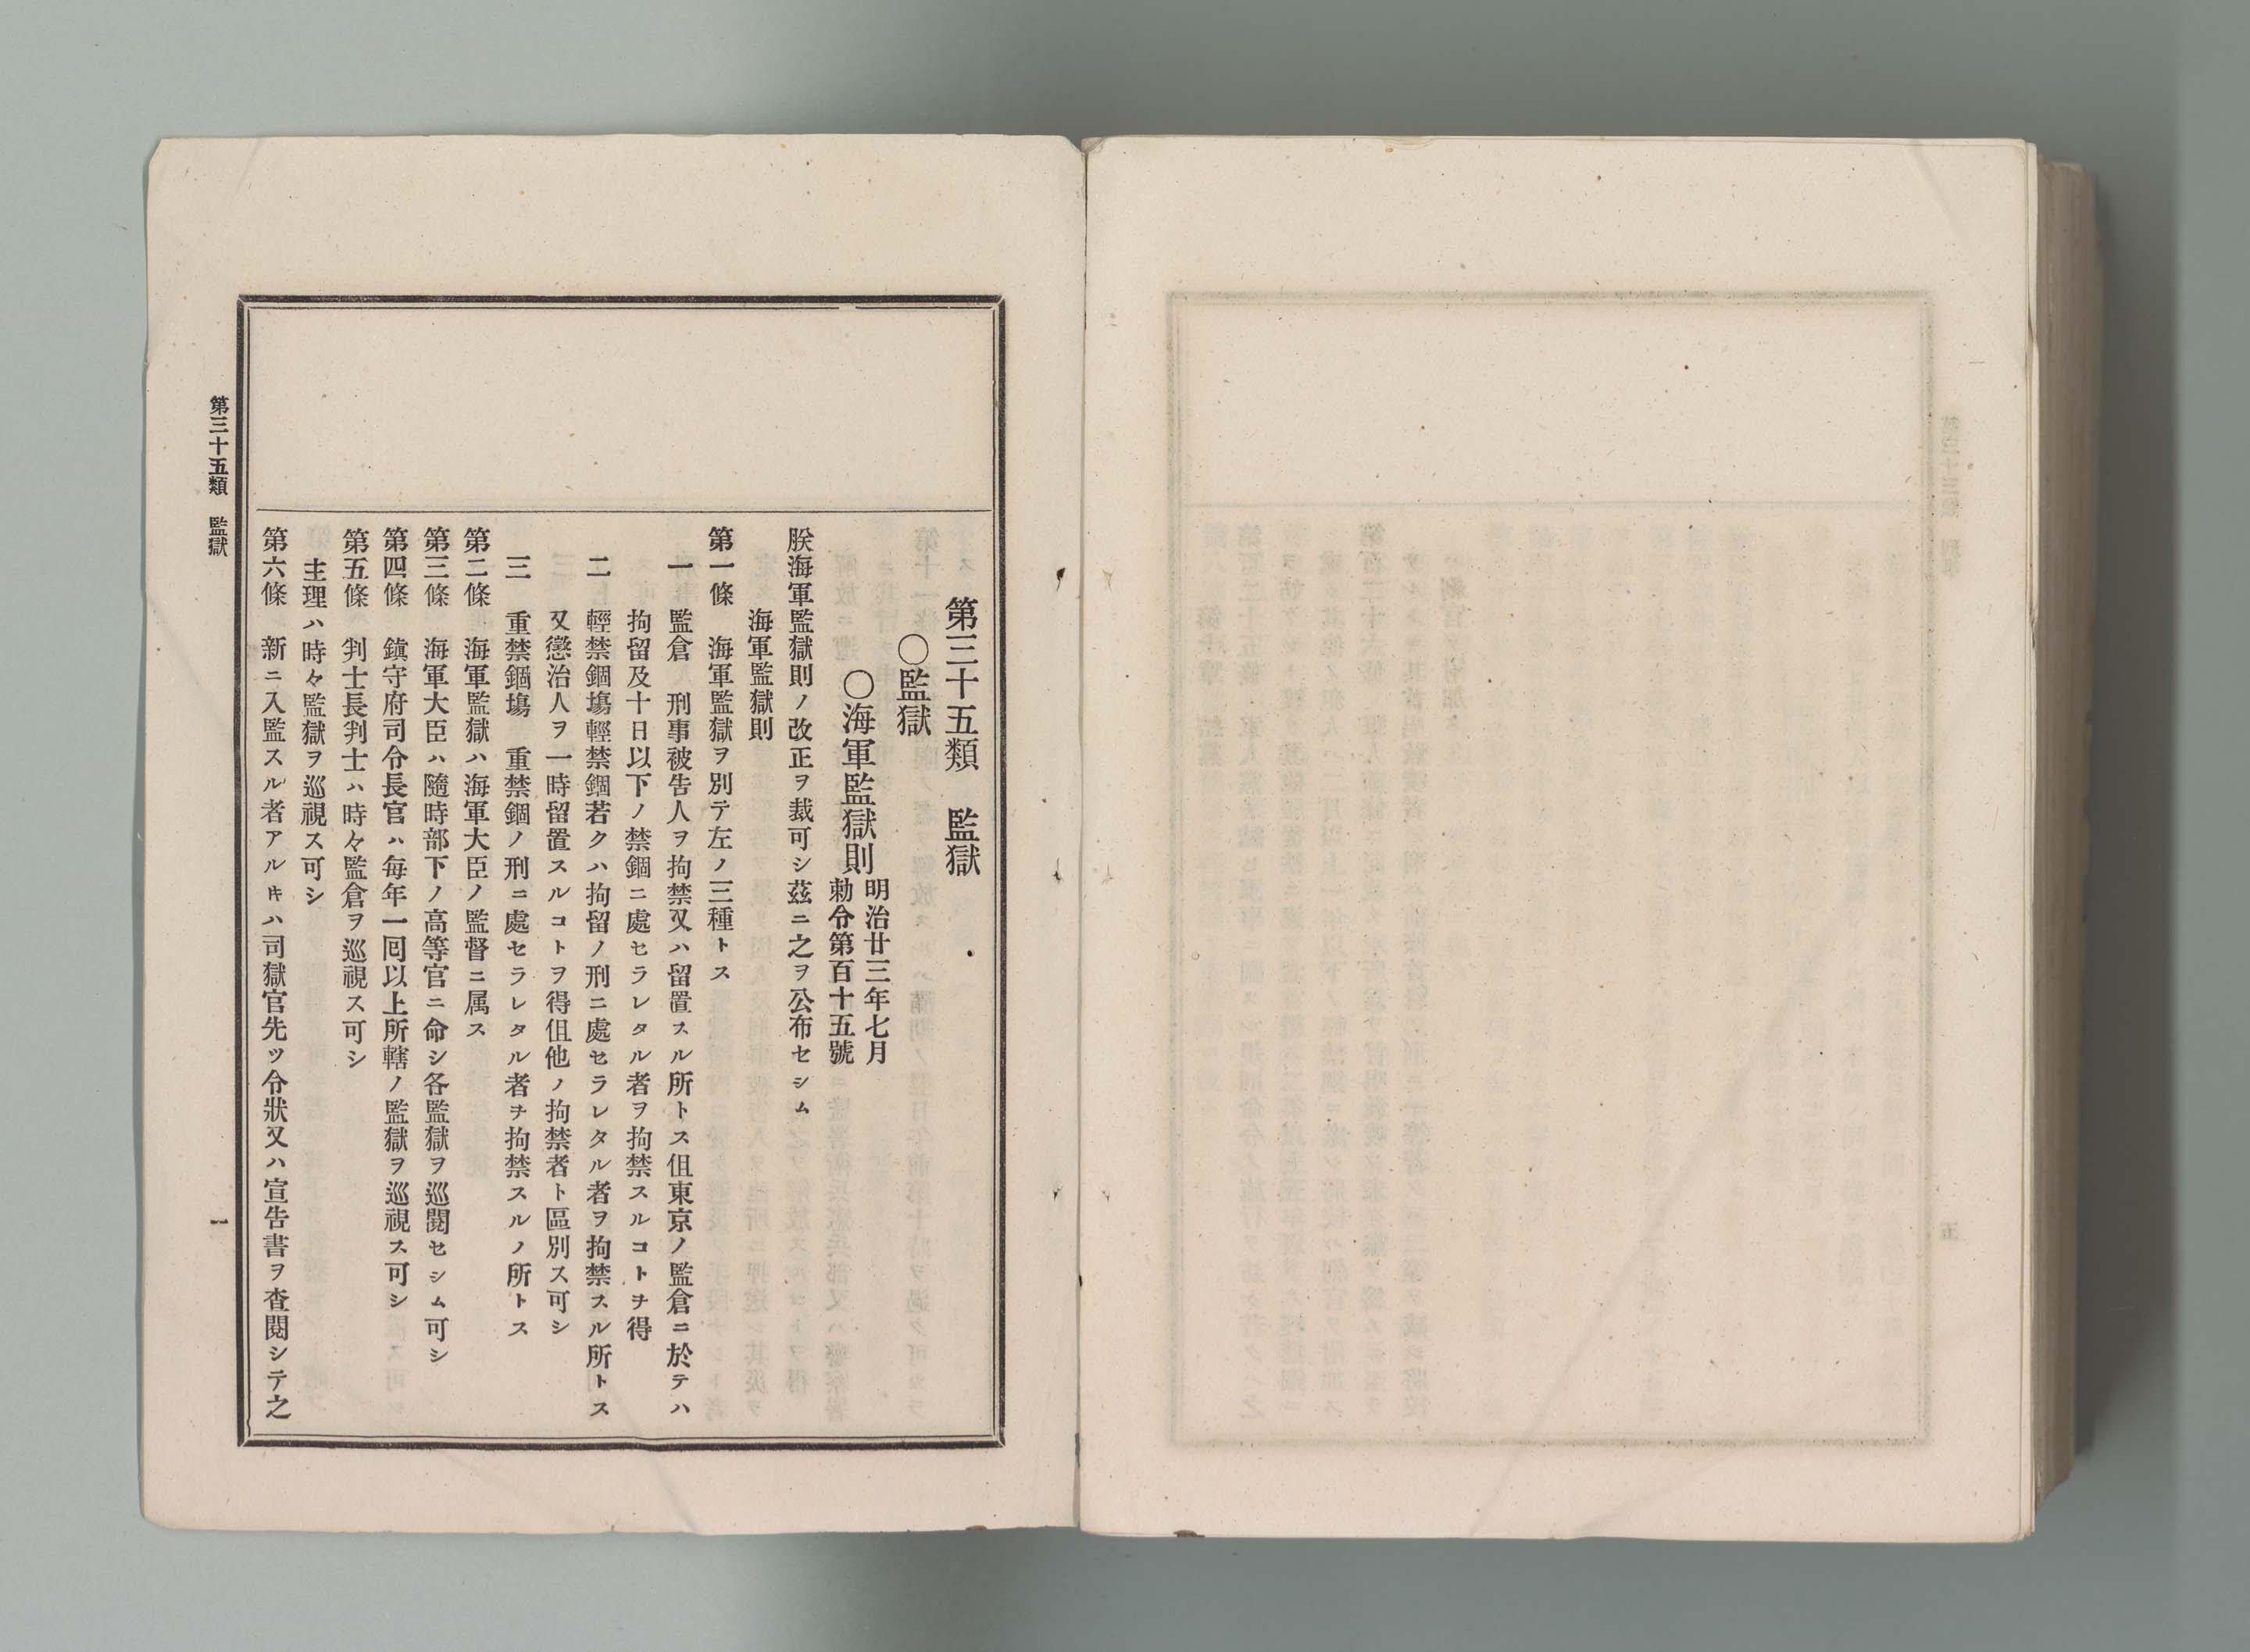 第三十五類　監獄
○監獄
○海軍監獄則
明治廿三年七月
勅令第百十五號
朕海軍監獄則ノ改正ヲ裁可シ茲ニ之ヲ公布セシム
海軍監獄則
第一條　海軍監獄ヲ別テ左ノ三種トス
一　監倉　刑事被告人ヲ拘禁又ハ留置スル所トス伹東京ノ監倉ニ於テハ
拘留及十日以下ノ禁錮ニ處セラレタル者ヲ拘禁スルコトヲ得
二　輕禁錮塲輕禁錮若クハ拘留ノ刑ニ處セラレタル者ヲ拘禁スル所トス
又懲治人ヲ一時留置スルコトヲ得伹他ノ拘禁者ト區別ス可シ
三　重禁錮塲　重禁錮ノ刑ニ處セラレタル者ヲ拘禁スルノ所トス
第二條　海軍監獄ハ海軍大臣ノ監督ニ属ス
第三條　海軍大臣ハ隨時部下ノ高等官ニ命シ各監獄ヲ巡閲セシム可シ
第四條　鎮守府司令長官ハ毎年一囘以上所轄ノ監獄ヲ巡視ス可シ
第五條　判士長判士ハ時々監倉ヲ巡視ス可シ
主理ハ時々監獄ヲ巡視ス可シ
第六條　新ニ入監スル者アルキハ司獄官先ツ令狀又ハ宣告書ヲ査閲シテ之
第三十五類　監獄
一